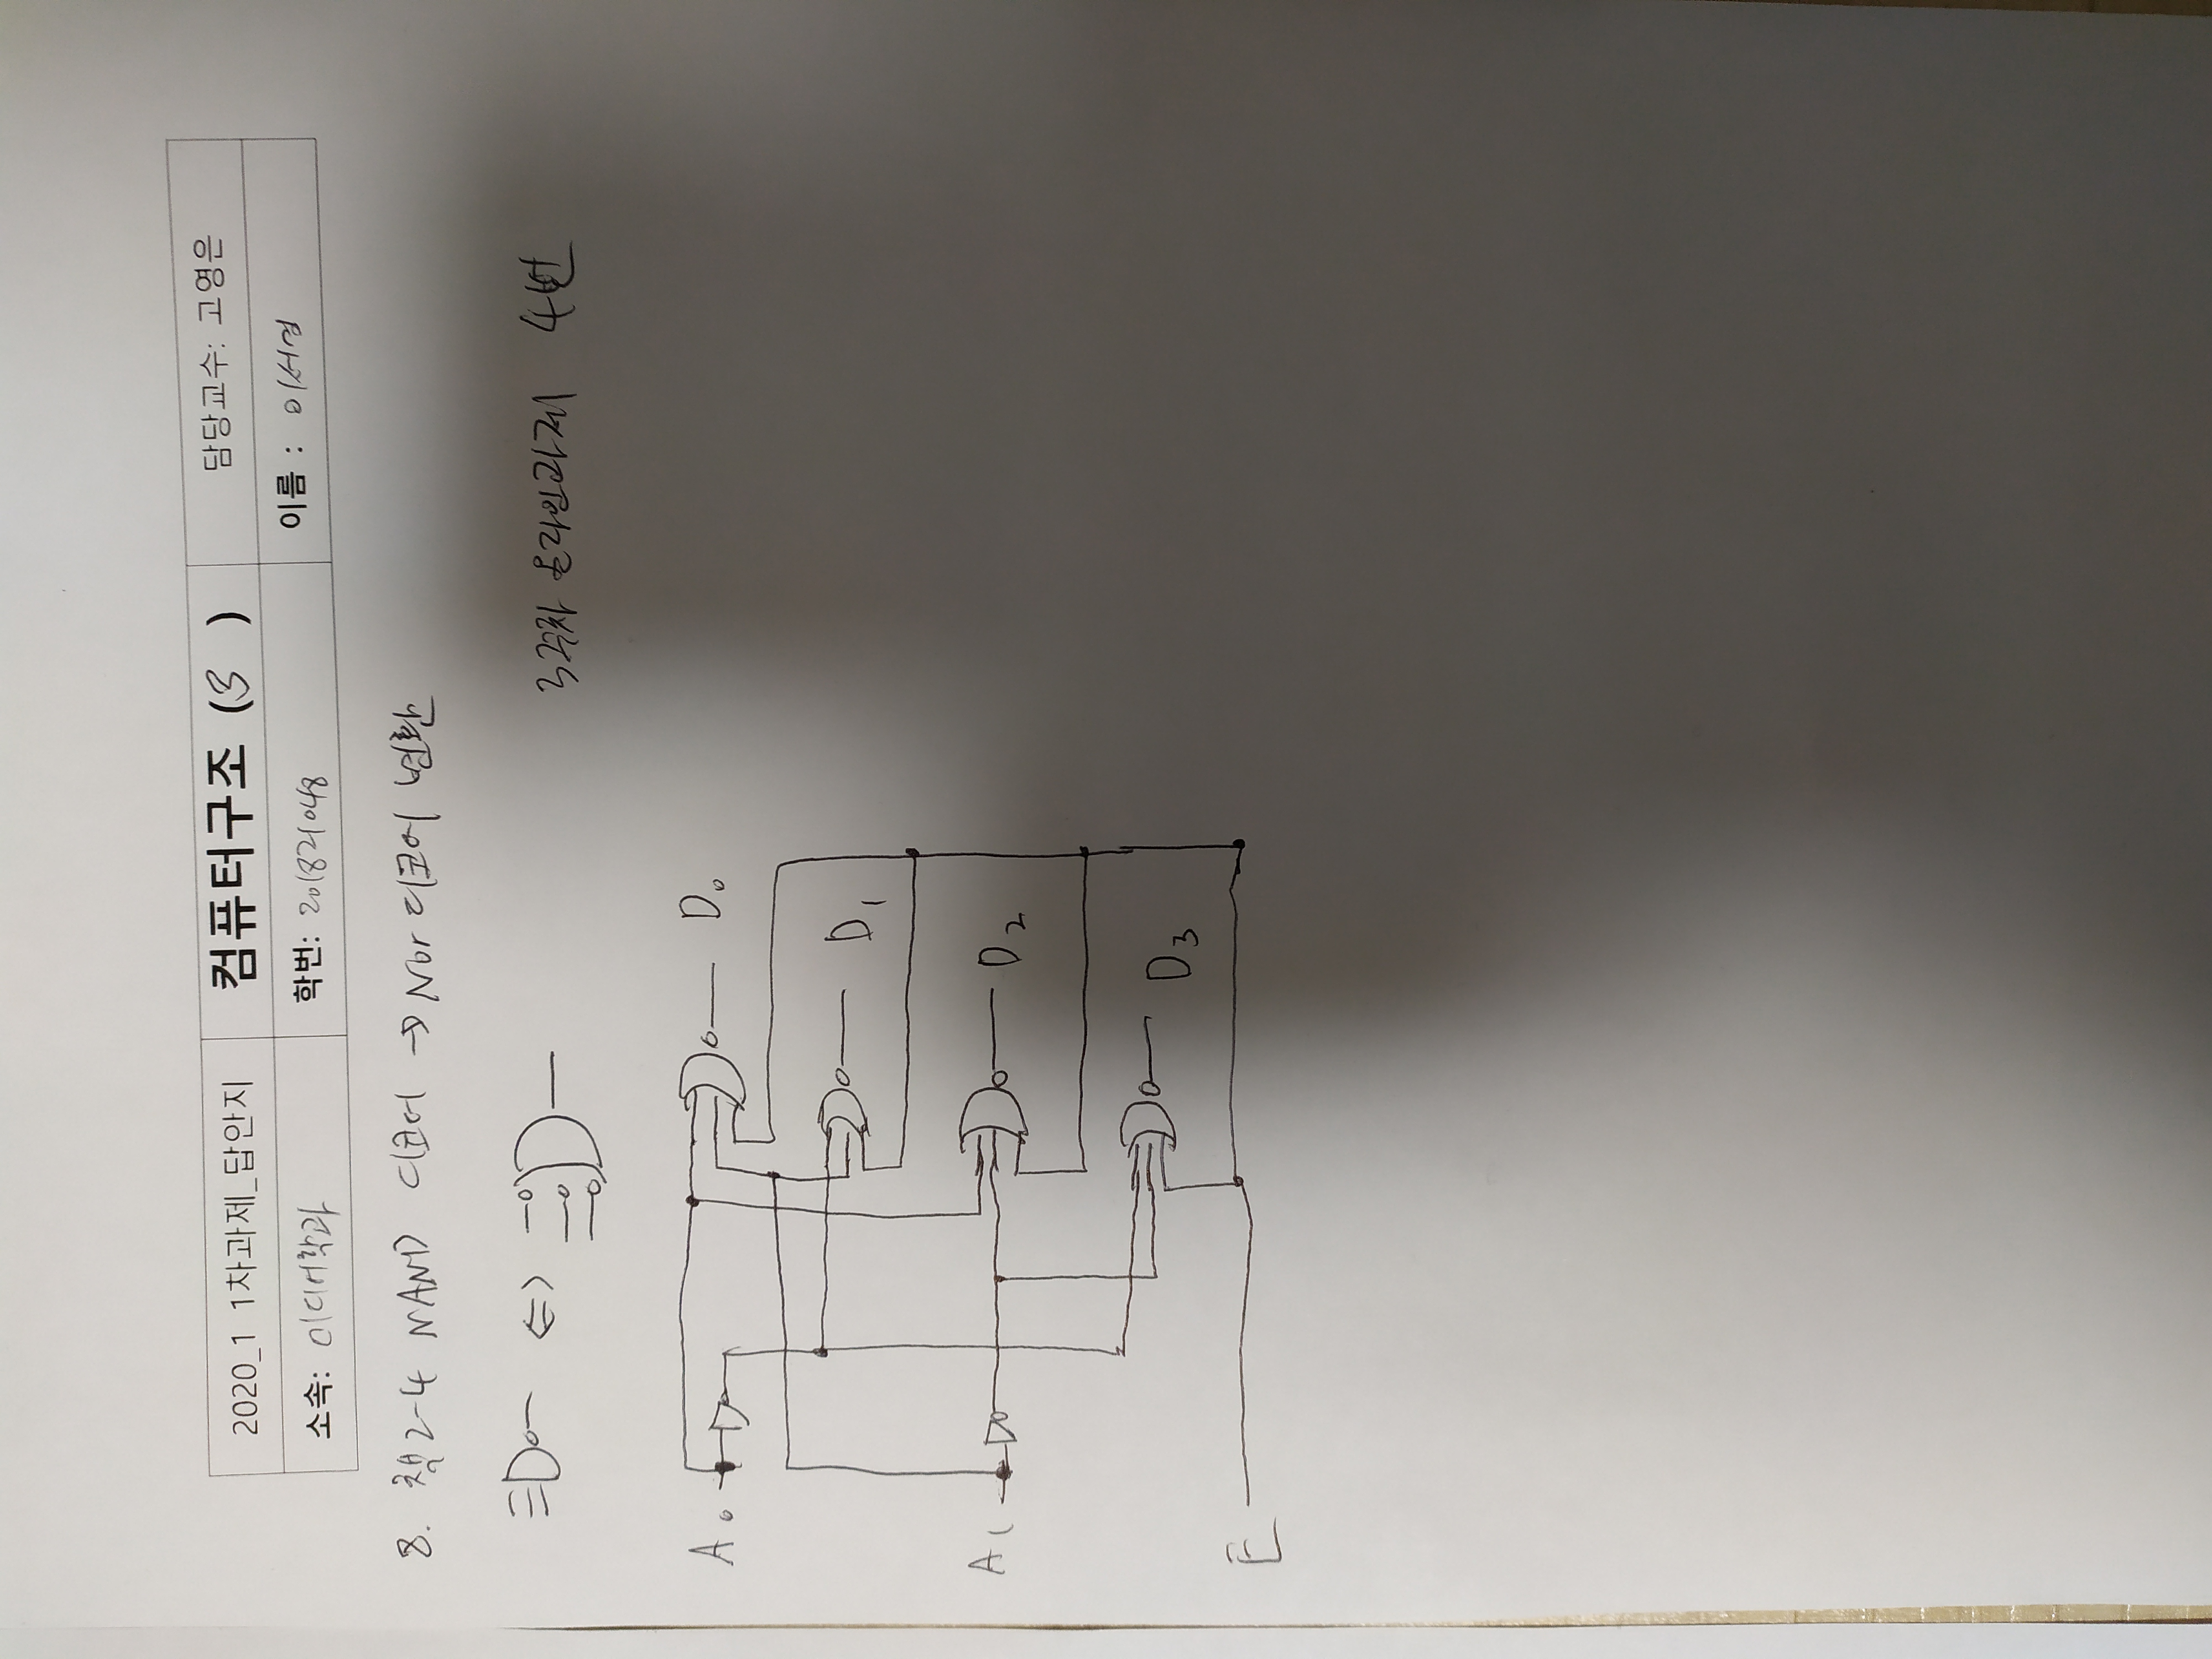 2020_1 1차과제_답안지
컴퓨터구조 (3 )
담당교수: 고영은
소속: 미디어학과
학번: 201821048
이름 : 이서현
8. 책2-4 NAND 디코더 → Nor 디코더 변환
⇔
3주차 온라인과제 4번
A0
D0
D1
A1
D2
D3
E